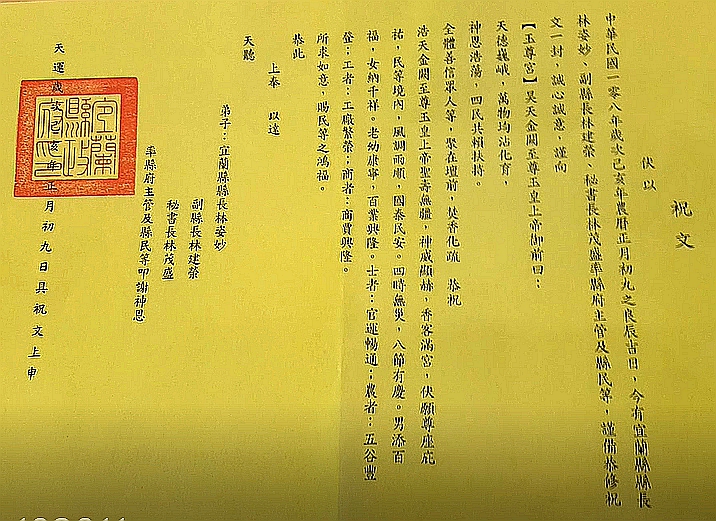 祝文
伏以
中華民國一零八年歲次己亥年農曆正月初九之良辰吉日，今有宜蘭縣縣長
林姿妙、副縣長林建榮、秘書長林茂盛率縣府主管及縣民等，謹備恭修祝
文一封，誠心誠意，謹向
【玉尊宮】昊天金闕至尊玉皇上帝御前曰：
天德巍峨，萬物均沾化育，
神恩浩蕩，四民共賴扶持。
全體善信眾人等，聚在壇前，焚香化疏 恭祝
浩天金闕至尊玉皇上帝聖壽無疆，神威顯赫，香客滿宮，伏願尊座庇
祐，民等境內，風調雨順，國泰民安。四時無災，八節有慶。男添百
福，女納千祥。老幼康寧，百業興隆。士者：官運暢通；農者：五谷豐
登；工者：工廠繁榮；商者：商賈興隆。
所求如意，賜民等之鴻福。
恭此
上奉 以達
天聽
弟子：宜蘭縣縣長林姿妙
副縣長林建榮
秘書長林茂盛
率縣府主管及縣民等叩謝神恩
天運歲次己亥年正月初九日具祝文上申
宜蘭縣政府印